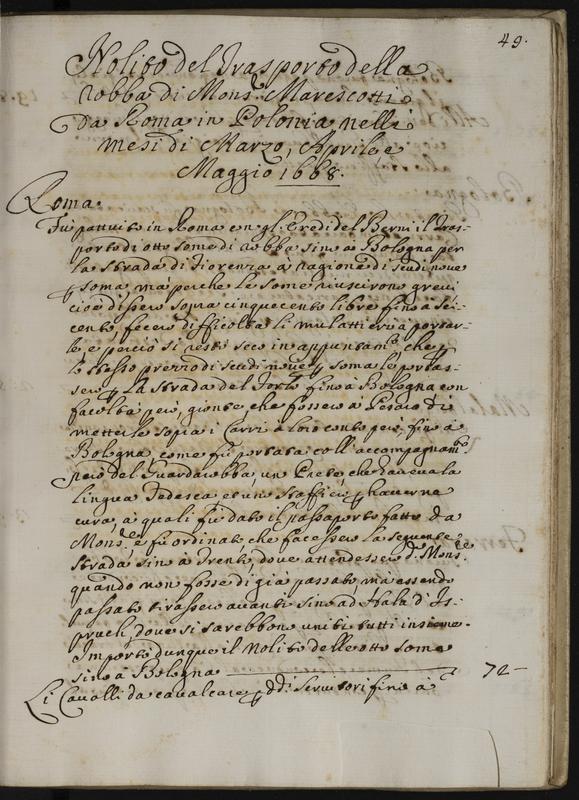 49.
Nolito del Trasporto della
robba di Mons.r Marescotti
da Roma in Polonia nelli
mesi di Marzo, Aprile, e
Maggio 1668.
Roma.
Fù pattuito in Roma con gl'Eredi del Berni il Tras-
porto di otto some di robba sino à Bologna per
la strada di Fiorenza à ragione di scudi nove
p soma, mà perche le some riuscirono grevi
cioè di peso sopra cinquecento libre fino à sei-
cento, fecero difficoltà li mulattieri à portar-
le e perciò si restò seco in appuntam.to, che p
lo stesso prezzo di scudi nove p soma le portas-
sero p la strada del Furlo fino à Bologna con
facoltà però, gionte che fossero à Pesaro di
metterle sopra i Carri à loro conto però, fino à
Bologna, come fù portata coll'accompagnam.to
però del Guardarobba, un Prete, che haveva la
lingua Tedesca et uno Staffiere p haverne
cura, à quali fù dato il passaporto fatto da
Mons.re e fù ordinato che facessero la seguente
strada, sino à Trento, dove attendessero d.o Mons.re
quando non fosse di già passato, mà essendo
passato tirassero avanti sino ad Hala d'Is-
pruch, dove si sarebbono uniti tutti insieme.
Importò dunque il Nolito delle otto some
sino à Bologna 72 -
Li Cavalli da cavalcare p dd.i servitori fino à